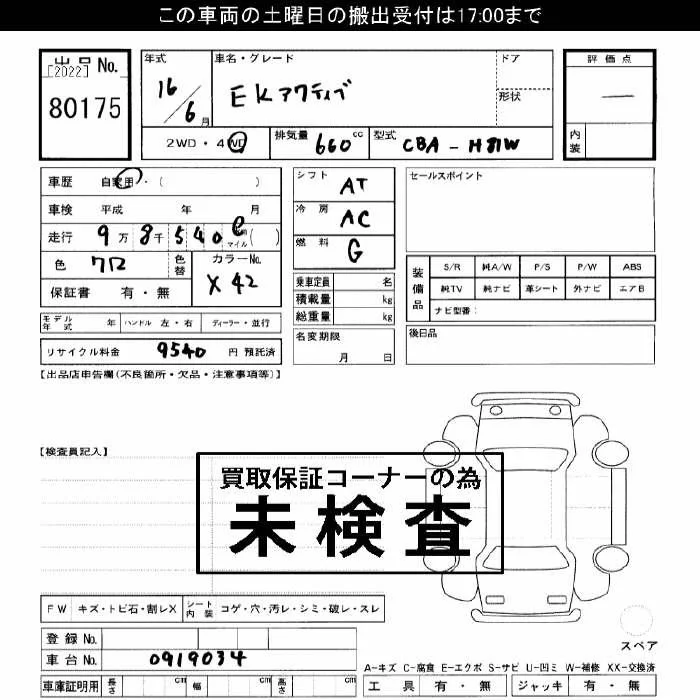 この車両の土曜日の搬出受付は17:00まで
出品 No.
[2022]
80175
年式 16/6月
車名・グレード EKアクティブ
ドア
形状
評価点 —
内装
2WD・4WD
排気量 660cc
型式 CBA-H81W
車歴 自家用・( )
車検 平成 年 月
走行 9万8千540
マイル( )
色 クロ
色替
カラーNo. X42
保証書 有・無
シフト AT
冷房 AC
燃料 G
乗車定員 名
積載量 kg
総重量 kg
名変期限
月 日
セールスポイント
装備品 S/R 純A/W P/S P/W ABS
純TV 純ナビ 革シート 外ナビ エアB
ナビ型番:
後日品
モデル年式 年 ハンドル 左・右 ディーラー・並行
リサイクル料金 9540 円 預託済
【出品店申告欄(不良箇所・欠品・注意事項等)】
【検査員記入】
買取保証コーナーの為
未検査
FW キズ・トビ石・割レX シート内装 コゲ・穴・汚レ・シミ・破レ・スレ
登録 No.
車台 No. 0919034
車庫証明用 長さ cm 幅 cm 高さ cm
スペア
A-キズ C-腐食 E-エクボ S-サビ U-凹ミ W-補修 XX-交換済
工具 有・無 ジャッキ 有・無